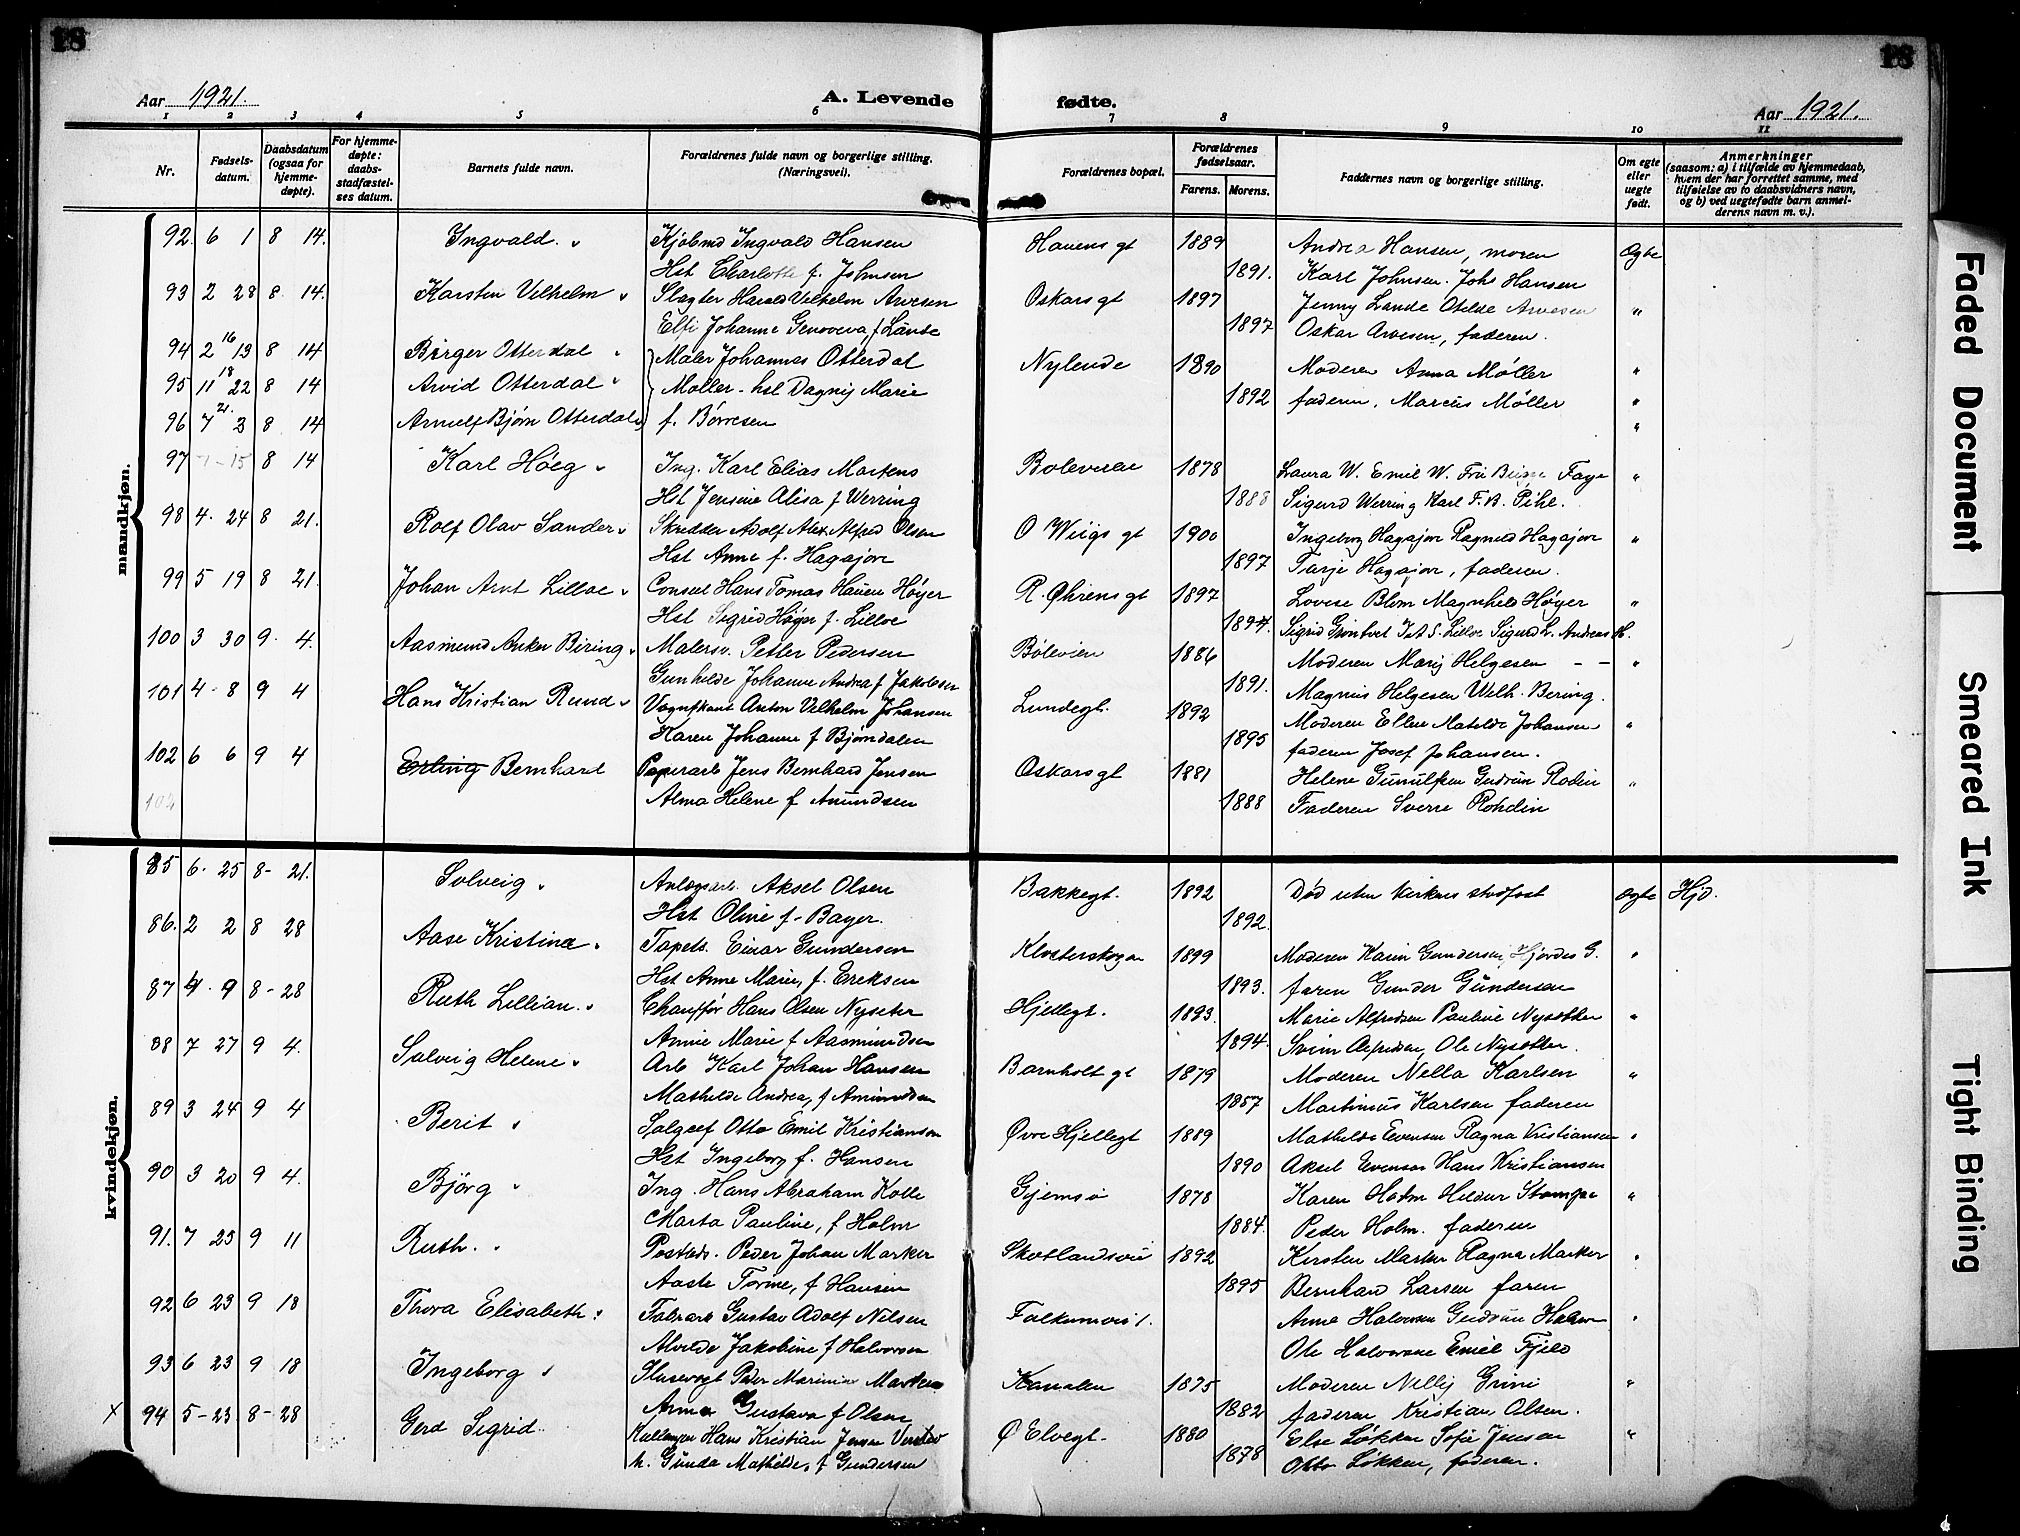 18
18
Aar 1921.
A. Levende
fødte.
Aar 1921.
1 2 3 4 5 6 7 8 9 10 11
Nr.
Fødsels-datum.
Daabsdatum (ogsaa for hjemme-døpte).
For hjemme-døpte: daabs-stadfæstel-ses datum.
Barnets fulde navn.
Forældrenes fulde navn og borgerlige stilling. (Næringsvei).
Forældrenes bopæl.
Forældrenes fødselsaar.
Farens. Morens.
Faddernes navn og borgerlige stilling.
Om egte eller uegte født.
Anmerkninger
(saasom: a) i tilfælde av hjemmedaab, hvem der har forrettet samme, med tilføielse av to daabsvidners navn, og b) ved uegtefødte barn anmel-derens navn m. v.).
mandkjøn.
92. 6 1 8 14. Ingvald. Kjøbmd Ingvald Hansen Havens gt 1889 Andrea Hansen, moren Egte
Hst Charlotte f. Johnsen 1891. Karl Johnsen. Johs Hansen
93 2 28 8. 14. Karsten Vilhelm Slagter Harald Vilhelm Arvesen Oskarsgt 1897 Jenny Lande Otilde Arvesen "
Elfi Johanne Genoveva f Lande 1897 Oskar Arvesen, faderen.
94 2 16/13 8 14 Birger Otterdal Maler Johannes Otterdal Nylende 1890 Moderen Anna Møller "
95 11 18/22 8 14 Arvid Otterdal Møller - hst Dagny Marie 1892 faderen, Marcus Møller "
96 7 21/3 8 14 Arnulf Bjørn Otterdal f. Børresen "
97 15 8 14 Karl Höeg Ing. Karl Elias Martens Boleveien 1878 Laura W. Emil W. Fru Faye "
Hst Jensine Alisa f Werring 1888 Sigurd Werring Karl F. B. Pihl.
98 4. 24 8 21. Rolf Olav Sander Skrædder Adolf Alex. Alfred Olsen O Wiigs gt 1900 Ingeborg Hagajor Ragnild Hagajor "
Hst Anne f. Hagajor 1897 Tarje Hagajor, faderen.
99 5 19 8 21. Johan Arnt Lilloe Consul Hans Tomas Hauen Høyer R. Øhrens gt 1897 Lovise Blom Magnhild Høyer "
Hst Sigrid Høyer f. Lilloe 1894. Sigrid Grøntvet J A S. Lilloe Sigurd L. Andreas H.
100 3 30 9. 4. Aasmund Anker Bering Malersv. Petter Pedersen Böleveien 1886 Moderen Mary Helgesen - - "
Gunhilde Johanne Andrea f Jakobsen 1891. Magnus Helgesen Wilh. Bering.
101 4 - 8 9 4 Hans Kristian Rund Vognfkant Anton Vilhelm Johansen Lundegt. 1892 Moderen Ellen Matilde Johansen "
Karen Johanne f Bjøndalen 1895 faderen Josef Johansen.
102 6 6 9 4 Erling Bernhard Papirarb Jens Bernhard Jensen Oskarsgt 1881 Helene Gunulfsen Gudrun Rodin "
104 Alma Helene f Amundsen 1888 Faderen Sverre Rohdin
kvindekjøn.
85 6. 25 8 - 21. Solveig Anlægsarb. Aksel Olsen Bakkegt. 1892 Død uten kirkens stadfæst Egte Hjd.
Hst Olive f. Bayer. 1892.
86. 2 2 8 28 Aase Kristine Tapets. Einar Gundersen Klosterskogen 1899 Moderen Karen Gundersen, Hjørdis G. "
Hst Anne Marie, f. Eriksen 1893. faren Gunder Gundersen
87 4. 9 8 - 28 Ruth Lillian. Chauffør Hans Olsen Nyseter Hjellegt. 1893. Marie Alfredsen Pauline Nysetter "
Annie Marie f Aasmundsen 1894. Svein Alfredsen, Ole Nysetter.
88 7 27 9 4. Solveig Helene Arb Karl Johan Hansen Barnholt gt 1879 Moderen Nella Karlsen "
Mathilde Andrea, f Amundsen 1887 Martinius Karlsen faderen
89 3 24 9 4 Berit Salgsef Otto Emil Kristiansen Øvre Hjellegt 1889 Mathilde Evensen Ragna Kristiansen "
Hst Ingeborg f. Hansen 1890 Aksel Evensen Hans Kristiansen
90 3 20 9 4. Bjørg Ing. Hans Abraham Kolle Gjemsø 1878 Karen Holm Hildur Stampe "
Marta Pauline, f Holm 1884. Peder Holm. faderen
91. 7 25 9 11 Ruth. Postbds. Peder Johan Marker Skotlandsvei 1892 Kirsten Marker Ragna Marker "
Aaste Torine, f Hansen 1895 Bernhard Larsen faren
92 6 23 9 18 Thora Elisabeth. Fabrarb Gustav Adolf Nilsen Falkumvei 1. Anna Halvorsen Gudrun "
Alvilde Jakobine f Halvorsen Ole Halvorsen Emil Fjeld
93 6 23 9 18 Ingeborg Slusevogt Peder Marinius Kanalen 1875 Moderen Nelly Grini "
Anna Gustava f Olsen 1882 faderen Kristian Olsen.
X 94 5 - 23 8 - 28 Gerd Sigrid Hans Kristian Jensen Ø Elvegt. 1880 Else Løkken Sofie Jensen "
h. Gunda Mathilde, f Gundersen 1878 Otto Løkken, faderen.
Faded Document
Smeared Ink
Tight Binding